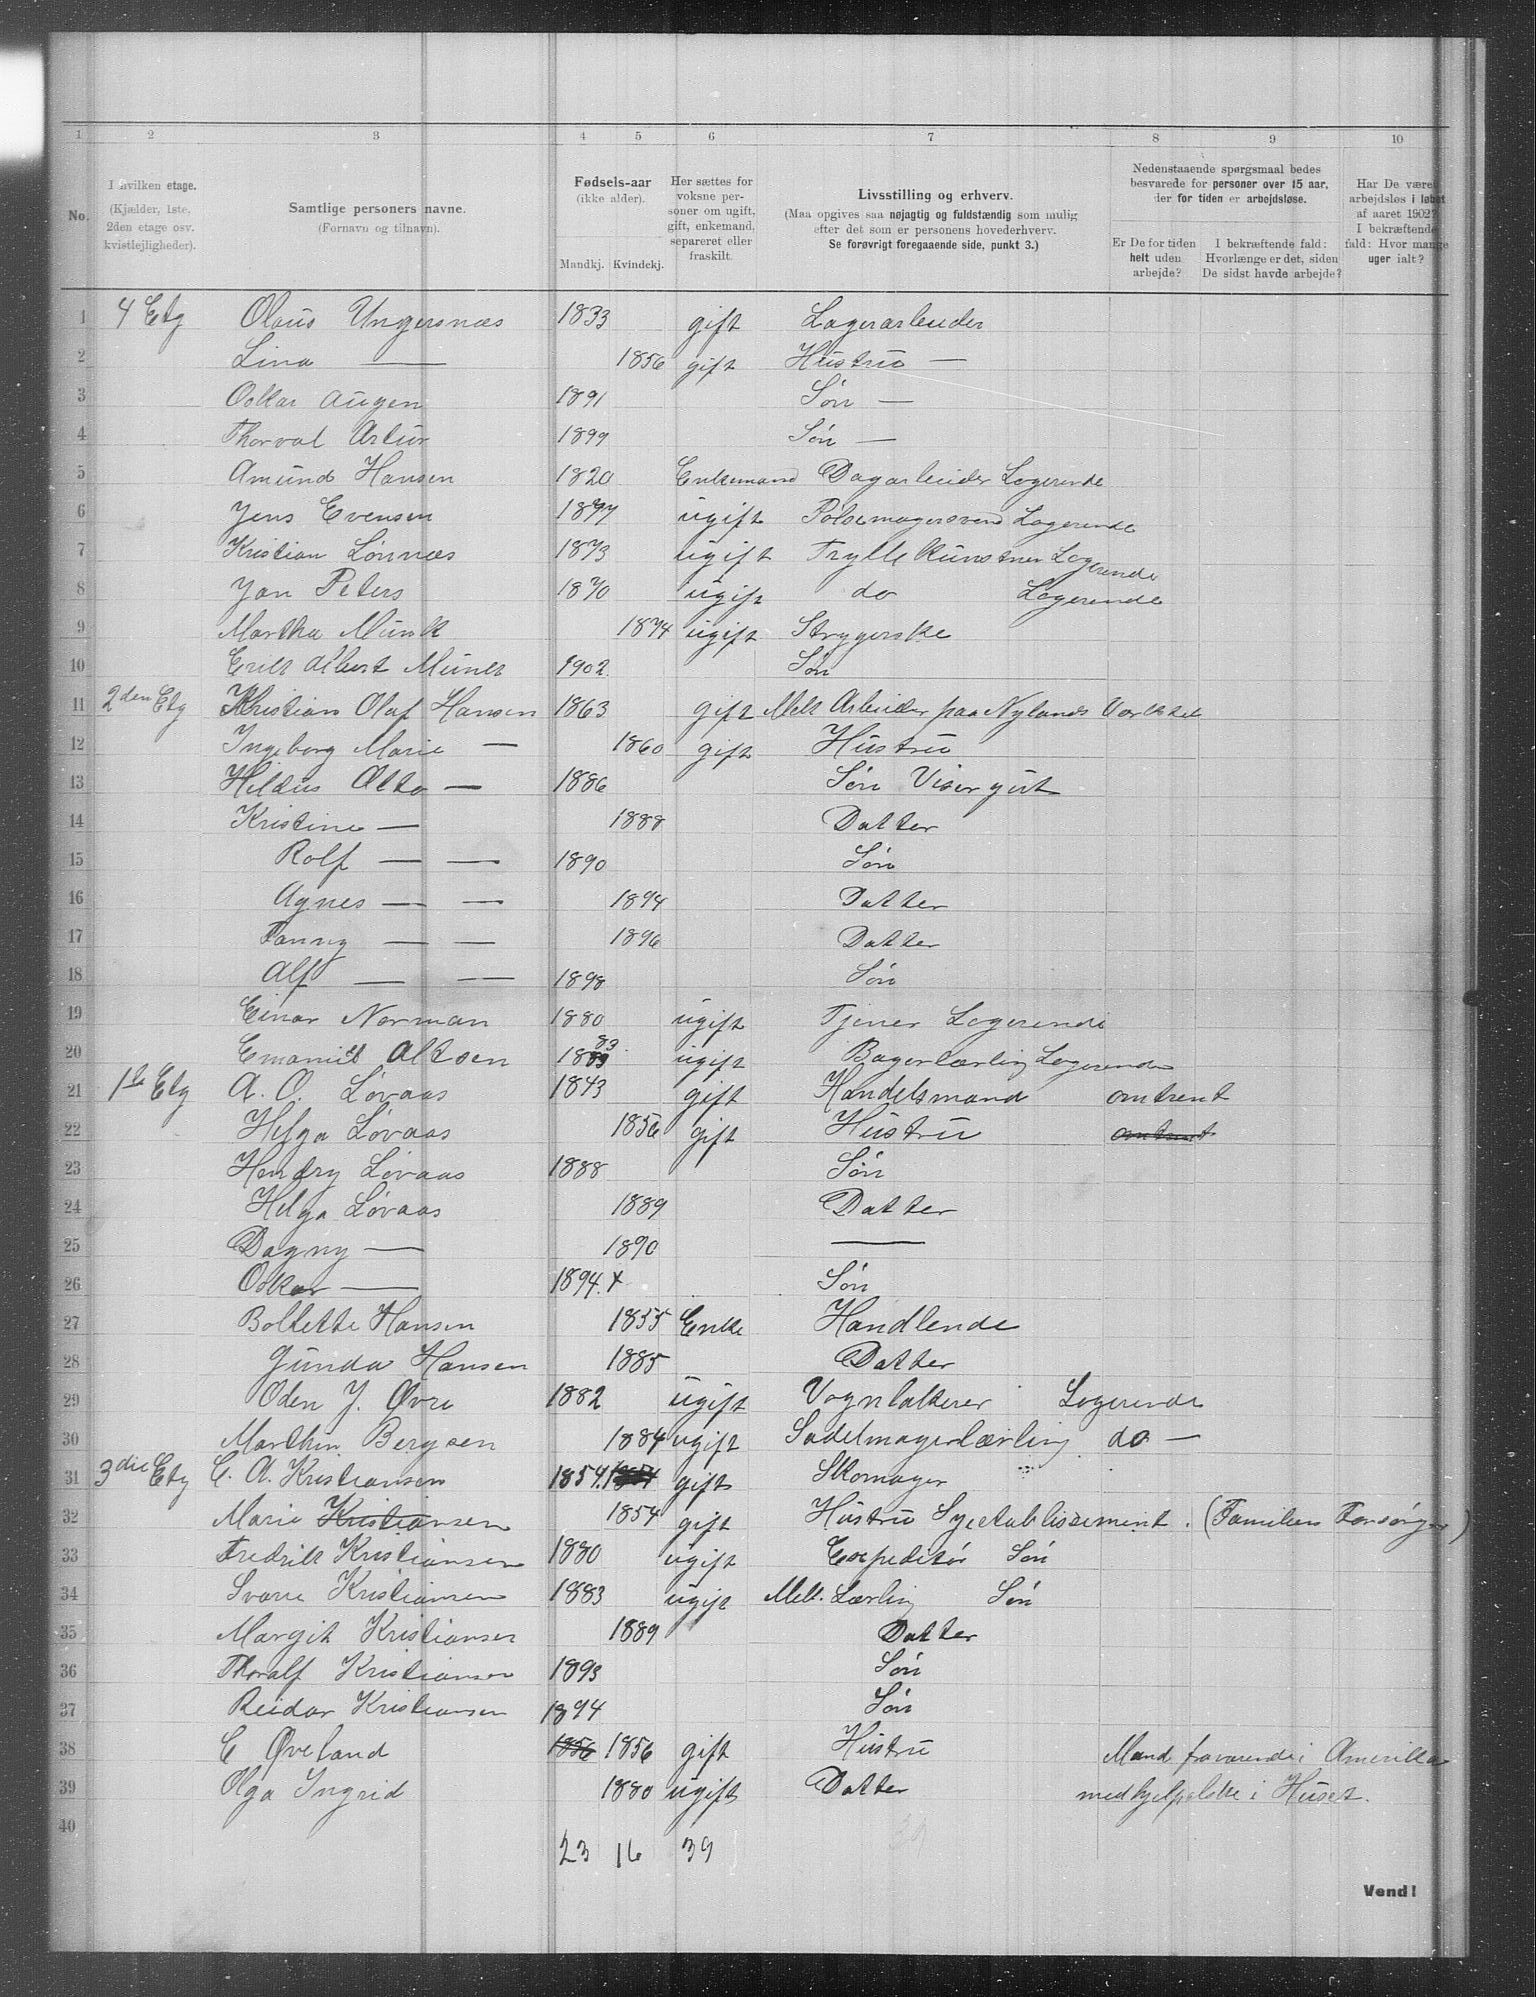 1 2 3 4 5 6 7 8 9 10
No.
I hvilken etage.
(Kjælder, 1ste,
2den etage osv.
kvistlejligheder).
Samtlige personers navne.
(Fornavn og tilnavn).
Fødsels-aar
(ikke alder).
Mandkj. Kvindekj.
Her sættes for
voksne per-
soner om ugift,
gift, enkemand,
separeret eller
fraskilt.
Livsstilling og erhverv.
(Maa opgives saa nøjagtig og fuldstændig som mulig
efter det som er personens hovederhverv.
Se forøvrigt foregaaende side, punkt 3.)
Nedenstaaende spørgsmaal bedes
besvarede for personer over 15 aar,
der for tiden er arbejdsløse.
Er De for tiden
helt uden
arbejde?
I bekræftende fald:
Hvorlænge er det, siden
De sidst havde arbejde?
Har De været
arbejdsløs i løbet
af aaret 1902?
I bekræftende
fald: Hvor mange
uger ialt?
1 4 Etg Olaus Ungersnæs 1833 gift Lagerarbeider
2 Lina — 1856 gift Hustru —
3 Oskar Augen 1891 Søn —
4 Thorval Artur 1899 Søn —
5 Amund Hansen 1820 Enkemand Dagarbeider Logerende
6 Jens Evensen 1877 ugift Pølsemagersvend Logerende
7 Kristian Lønnæs 1873 ugift Tryllekunstner Logerende
8 Jan Peters 1870 ugift do Logerende
9 Martha Munk 1874 ugift Strygerske
10 Erik Albert Munk 1902 Søn
11 2den Etg Khristian Olaf Hansen 1863 gift Mek Arbeider paa Nylands Værksted
12 Ingeborg Marie — 1860 gift Hustru
13 Hildus Otto — 1886 Søn Visergut
14 Kristine — 1888 Datter
15 Rolf — — 1890 Søn
16 Agnes — — 1894 Datter
17 Fanny — — 1896 Datter
18 Alf — — 1898 Søn
19 Einar Norman 1880 ugift Tjener Logerende
20 Emanuel Olsen 1883 83 ugift Bagerlærling Logerende
21 1ste Etg A. O. Løvaas 1843 gift Handelsmand omtrent
22 Helga Løvaas 1856 gift Hustru omtrent
23 Hendry Løvaas 1888 Søn
24 Helga Løvaas 1889 Datter
25 Dagny — 1890 —
26 Oskar — 1894. x Søn
27 Bollette Hansen 1855 Enke Handlende
28 Gunda Hansen 1885 Datter
29 Oden J. Øvre 1882 ugift Vognlakerer Logerende
30 Marthin Bergsen 1884 ugift Sadelmagerlærling do —
31 3die Etg C. A. Kristiansen 1854. 1854 gift Skomager
32 Marie Kristiansen 1854 gift Hustru Syetablissement. (Familiens Forsørger)
33 Fredrik Kristiansen 1880 ugift Expeditør Søn
34 Svarre Kristiansen 1883 ugift Mek. Lærling Søn
35 Margit Kristiansen 1889 Datter
36 Thoralf Kristiansen 1893 Søn
37 Reidar Kristiansen 1894 Søn
38 C Øveland 1856 1856 gift Hustru Mand fraværende i Amerika
39 Olga Ingrid 1880 ugift Datter medhjelpelske i Huset.
40
23 16 39
39
Vend!